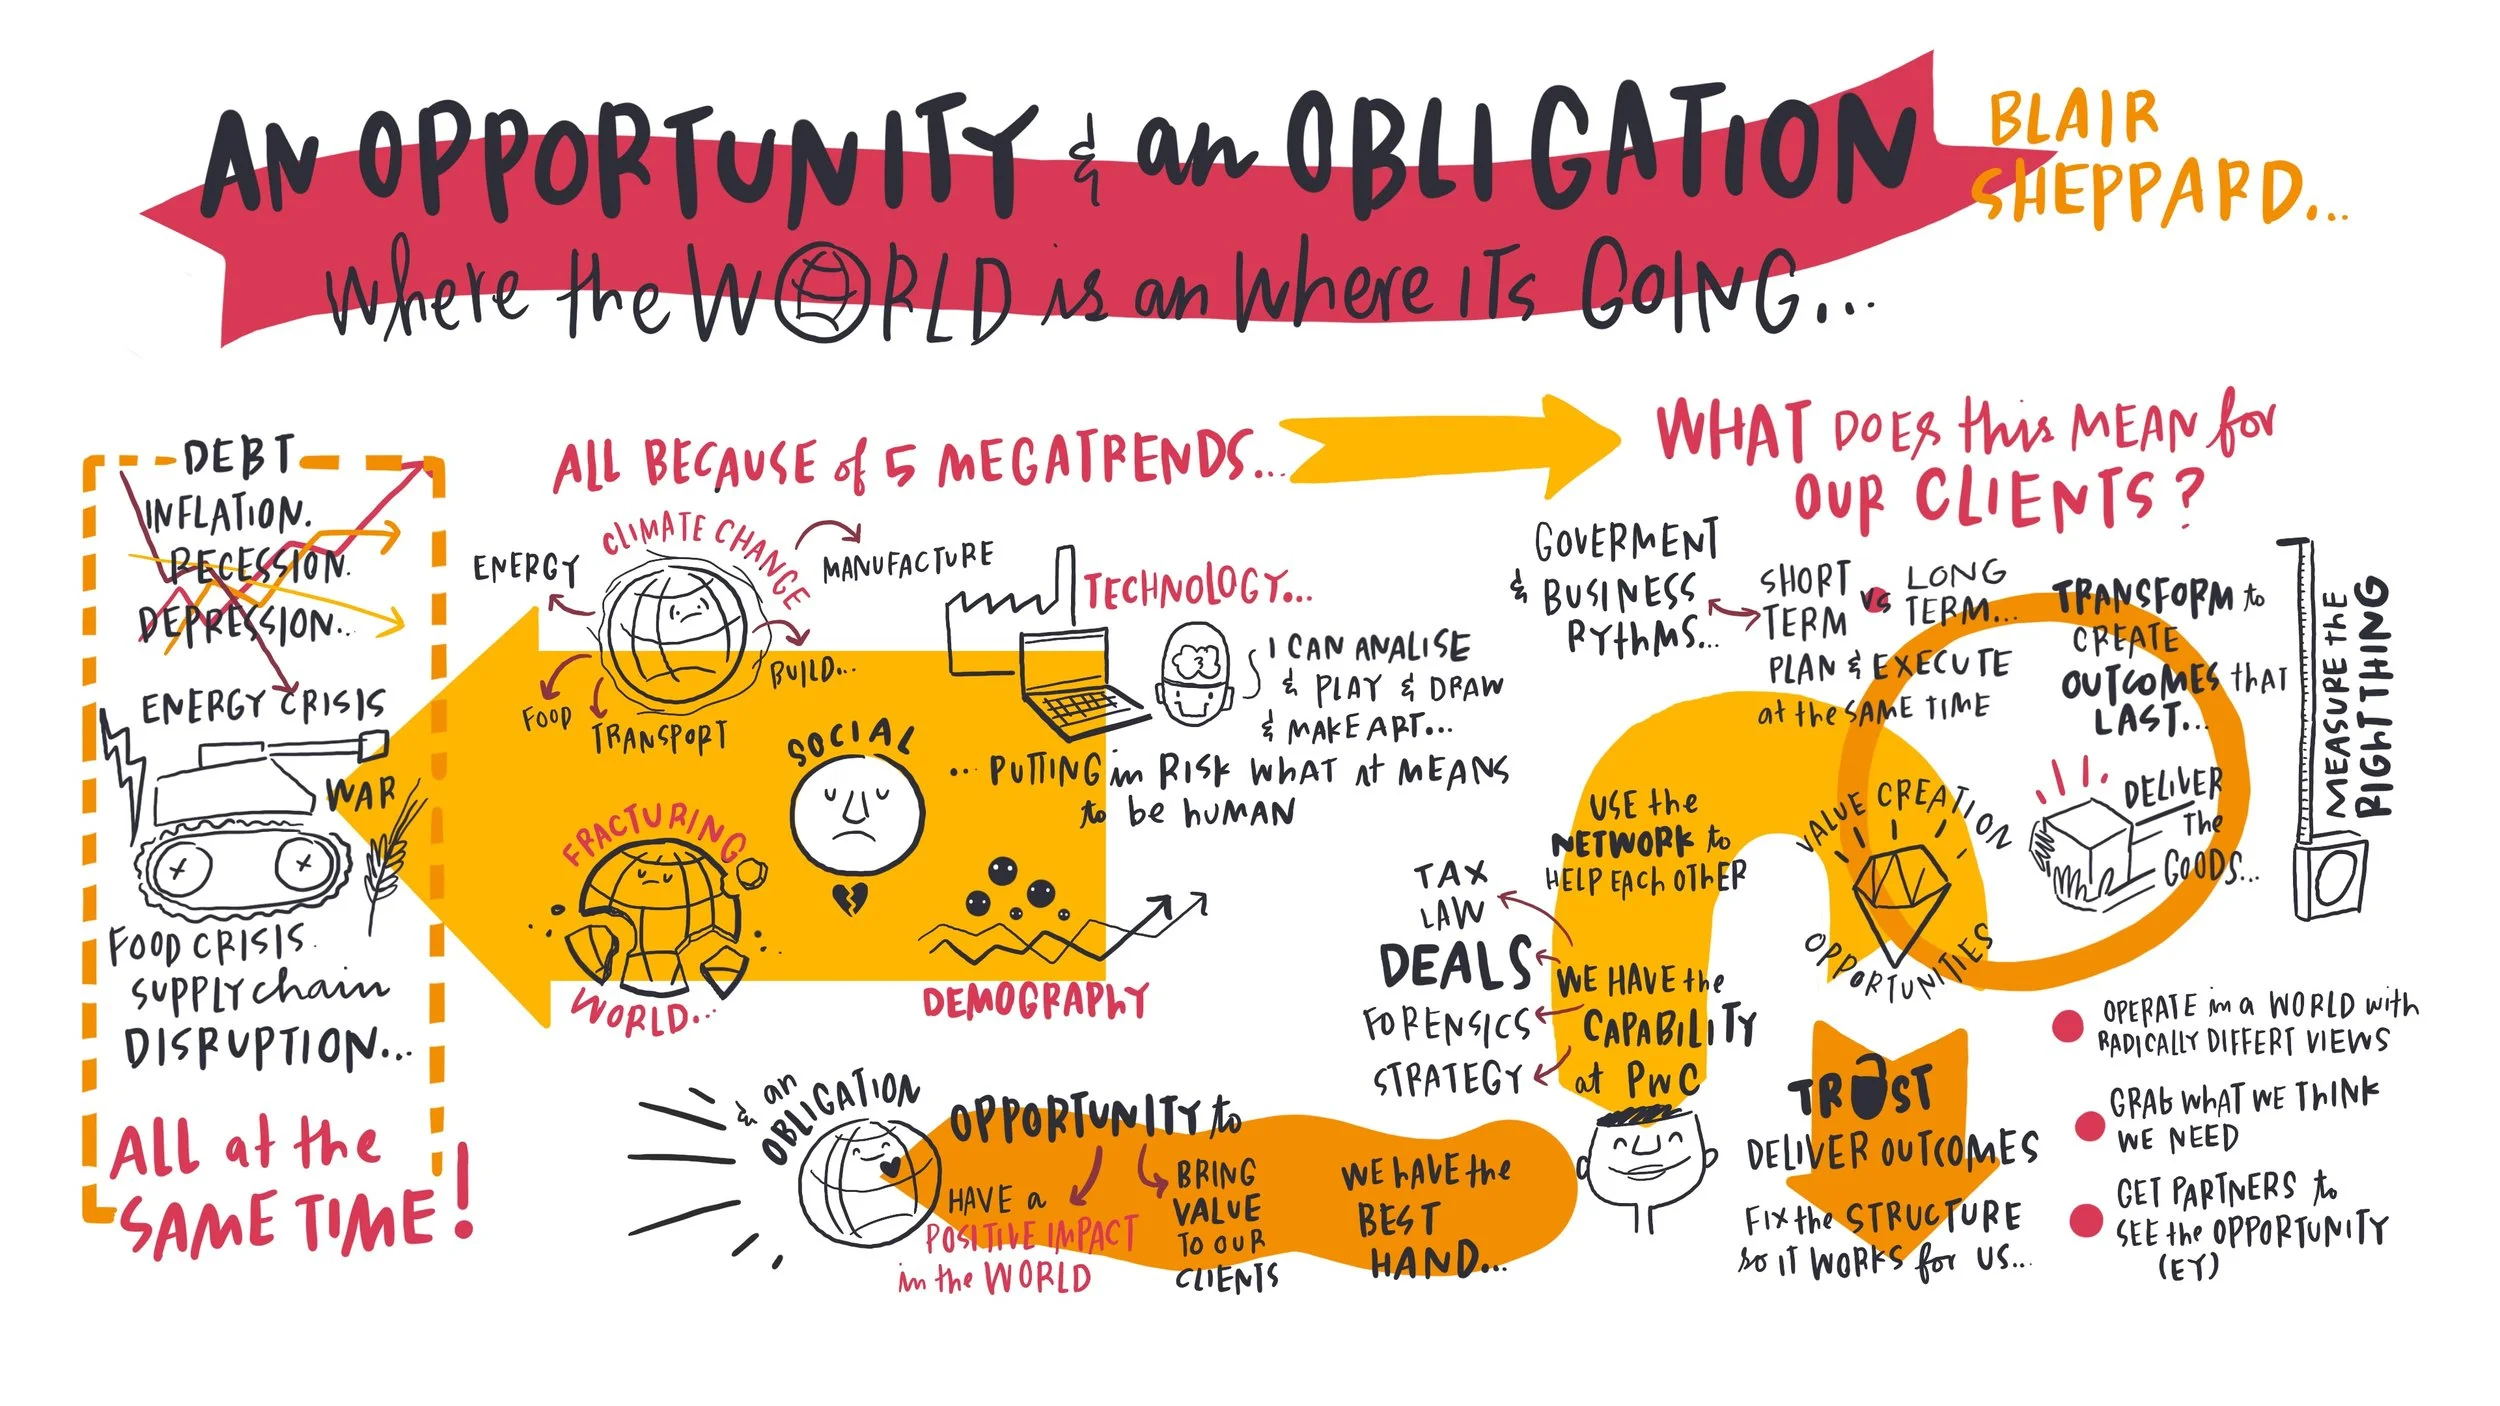 AN OPPORTUNITY & an OBLIGATION
where the WORLD is an where ITs GOING...
BLAIR
SHEPPARD...
DEBT
INFLATION.
RECESSION.
DEPRESSION...
ENERGY CRISIS
WAR
FOOD CRISIS.
SUPPLY chain
DISRUPTION...
ALL at the
SAME TIME!
ALL BECAUSE of 5 MEGATRENDS...
CLIMATE CHANGE
ENERGY
MANUFACTURE
BUILD...
FOOD
TRANSPORT
TECHNOLOGY...
I CAN ANALISE
& PLAY & DRAW
& MAKE ART...
... PUTTING in RISK WHAT it MEANS
to be human
SOCIAL
FRACTURING
WORLD...
DEMOGRAPHY
WHAT DOES this MEAN for
OUR CLIENTS?
GOVERMENT
& BUSINESS
RYthMS...
SHORT
TERM
VS
LONG
TERM...
PLAN & EXECUTE
at the SAME TIME
TRANSFORM to
CREATE
OUTCOMES that
LAST...
MEASURE the
RIGHT THING
VALUE CREATION
OPPORTUNITIES
DELIVER
The
GOODS...
USE the
NETWORK to
HELP EACH OTHER
TAX
LAW
DEALS
FORENSICS
STRATEGY
WE HAVE the
CAPABILITY
at PWC
TRUST
DELIVER OUTCOMES
FIX the STRUCTURE
so IT WORKS for US...
OPERATE in a WORLD with
RADICALLY DIFFERT VIEWS
GRAb WhAT WE ThINK
WE NEED
GET PARTNERS to
SEE the OPPORTUNITY
(EY)
& an
OBLIGATION
OPPORTUNITY to
HAVE a
POSITIVE IMPACT
in the WORLD
BRING
VALUE
TO OUR
CLIENTS
WE hAVE the
BEST
HAND...